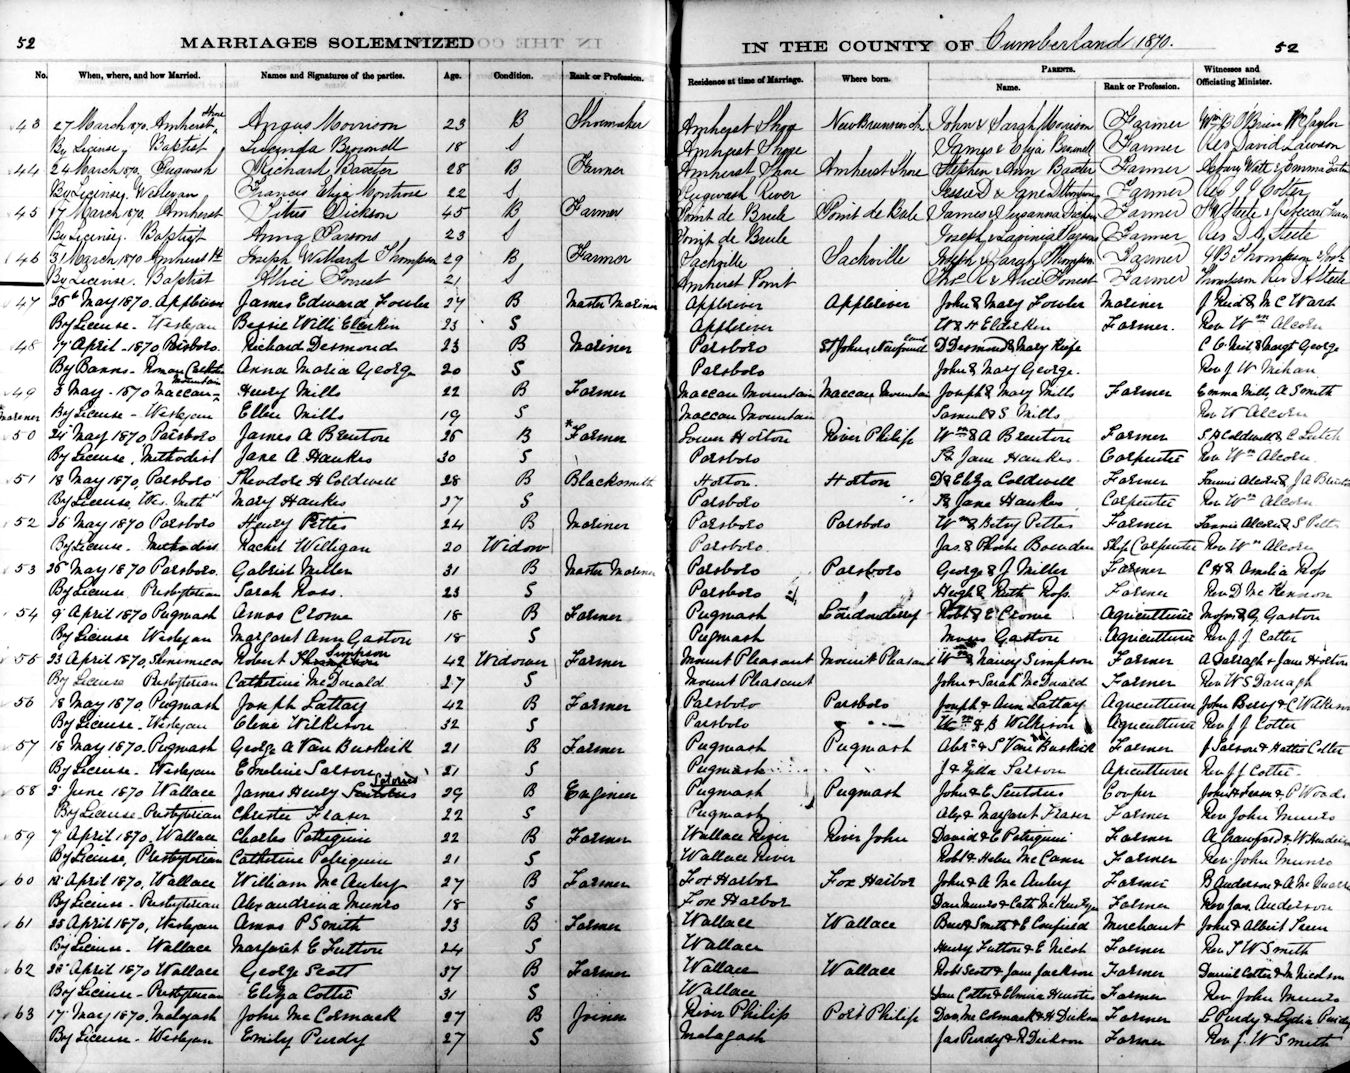 52
MARRIAGES SOLEMNIZED
IN THE COUNTY OF Cumberland 1870.
52
No. When, where, and how Married. Names and Signatures of the parties. Age. Condition. Rank or Profession. Residence at time of Marriage. Where born. PARENTS. Witnesses and
Name. Rank or Profession. Officiating Minister.
43 27 March 1870. Amherst Shore Angus Morrison 23 B Shoemaker Amherst Shore New Brunswick John & Sarah Morrison Farmer Wm O'Brien Taylor
By License, Baptist Lucinda 18 S Amherst Shore James & Eliza Farmer Rev David Lawson
44 24 March 1870. Pugwash Richard Baxter 28 B Farmer Amherst Shore Amherst Shore Stephen & Ann Baxter Farmer
By License, Wesleyan Frances Eliza 22 S Pugwash River Farmer Rev J J Colter
45 17 March 1870, Amherst Titus Dickson 45 B Farmer Point de Bute Point de Bute James & Susanna Farmer
By License. Baptist Anna Parsons 23 S Point de Bute Joseph & Lavinia Parsons Farmer Rev D A Steele
46 31 March 1870 Amherst Joseph Willard Thompson 29 B Farmer Sackville Sackville Joseph & Sarah Thompson Farmer J B Thompson
By License. Baptist Alice Forrest 21 S Amherst Point Thos R & Alice Forrest Farmer Thompson Rev D A Steele
47 26th May 1870, Appleriver James Edward Fowler 27 B Master Mariner Appleriver Appleriver John & Mary Fowler Mariner J Reid & M C Ward
By License - Wesleyan Bessie Wills Elderkin 23 S Appleriver W & H Elderkin Farmer. Rev Wm Alcorn
48 7 April - 1870 Parsboro Richard Desmond 23 B Mariner Parsboro St Johns Newfoundland D Desmond & Mary C & Margt George
By Banns - Roman Catholic Anna Maria George 20 S Parsboro John & Mary George. Rev J W
49 3 May - 1870 Maccan Mountain Henry Mills 22 B Farmer Maccan Mountain Maccan Mountain Joseph & Mary Mills Farmer Emma Mills, A Smith
* Mariner By License - Wesleyan Ellen Mills 19 S Maccan Mountain Samuel & S Mills Rev W Alcorn
50 24 May 1870 Parsboro James A Brenton 26 B *Farmer Lower Horton River Philip Wm & A Brenton Farmer S H Coldwell & C
By License, Methodist Jane A Hawkes 30 S Parsboro Jane Hawkes Carpenter Rev Wm Alcorn.
51 18 May 1870, Parsboro Theodore H Coldwell 28 B Blacksmith Horton. Horton D & Eliza Coldwell Farmer Fannie Alcorn & J A Brenton
By License, Wes. Meth. Mary Hawkes 27 S Parsboro " Jane Hawkes Carpenter Rev Wm Alcorn
52 26 May 1870 Parsboro Henry Pettes 24 B Mariner Parsboro Parsboro Wm & Betsy Pettes Farmer Fannie Alcorn & S
By License. Methodist Rachel Willigan 20 Widow Parsboro. Jas. & Phoebe Bowden Ship Carpenter Rev Wm Alcorn
53 26 May 1870 Parsboro. Gabriel Miller 31 B Master Mariner Parsboro Parsboro George & J Miller Farmer C H & Amelia Ross
By License Presbyterian Sarah Ross. 23 S Parsboro Hugh & Ruth Ross Farmer Rev D McKinnon
54 9 April 1870 Pugwash Amos Crowe 18 B Farmer Pugwash Londonderry Robt & E Crowe Agriculturer Moses & G Gaston
By License Wesleyan Margaret Ann Gaston 18 S Pugwash Moses Gaston Agriculturer Rev J J Colter
55 23 April 1870, Shinimicas Robert Simpson 42 Widower Farmer Mount Pleasant Mount Pleasant Wm & Nancy Simpson Farmer A Darragh & Jane Horton
By License Presbyterian Catherine McDonald 27 S Mount Pleasant John & Sarah McDonald Farmer Rev W S Darragh
56 18 May 1870 Pugwash Joseph Lattay 42 B Farmer Parsboro Parsboro Joseph & Ann Lattay Agriculturer John Bery & C Wilkison
By License - Wesleyan Wilkison 32 S Parsboro Wm & B Wilkison Agriculturer Rev J J Colter
57 18 May 1870. Pugwash George A Van Buskirk 21 B Farmer Pugwash Pugwash Abr. & S Van Buskirk Farmer J Salson & Hattie Colter
By License - Wesleyan Emeline Salson 21 S Pugwash J & Zilla Salson Agriculturer Rev J J Colter.
58 2 June 1870 Wallace James Henry 29 B Engineer Pugwash Pugwash John & E Cooper
By License. Presbyterian Christie Fraser 22 S Pugwash Alex & Margaret Fraser Farmer Rev John Munro
59 7 April 1870, Wallace Charles Patriquin 22 B Farmer Wallace River River John David & E Patriquin Farmer A Crawford & W
By License, Presbyterian Catherine Patriquin 21 S Wallace River Robt & Helen McCann Farmer Rev John Munro
60 12 April 1870, Wallace William McAuley 27 B Farmer Fox Harbor Fox Harbor John & A McAuley Farmer B Anderson & A
By License - Presbyterian Alexandrina Munro 18 S Fox Harbor Farmer Rev Jas. Anderson
61 25 April 1870, Wesleyan Amos P Smith 23 B Farmer Wallace Wallace Smith & E Canfield Merchant John & Albert
By License - Wallace Margaret E Tutton 24 S Wallace Henry Tutton & E Farmer Rev J W Smith
62 26 April 1870 Wallace George Scott 37 B Farmer Wallace Wallace Robt Scott & Jane Jackson Farmer Daniel Cotter & M Nicolson
By License - Presbyterian Eliza Cotter 31 S Wallace Cotter & Elmira Farmer Rev John Munro
63 17 May 1870. Malagash John McCormack 27 B Joiner River Philip Port Philip McCormack & H Dickson Farmer L Purdy & Lydia Purdy
By License - Wesleyan Emily Purdy 27 S Malagash Jas Purdy & R Dickson Farmer Rev J. W Smith